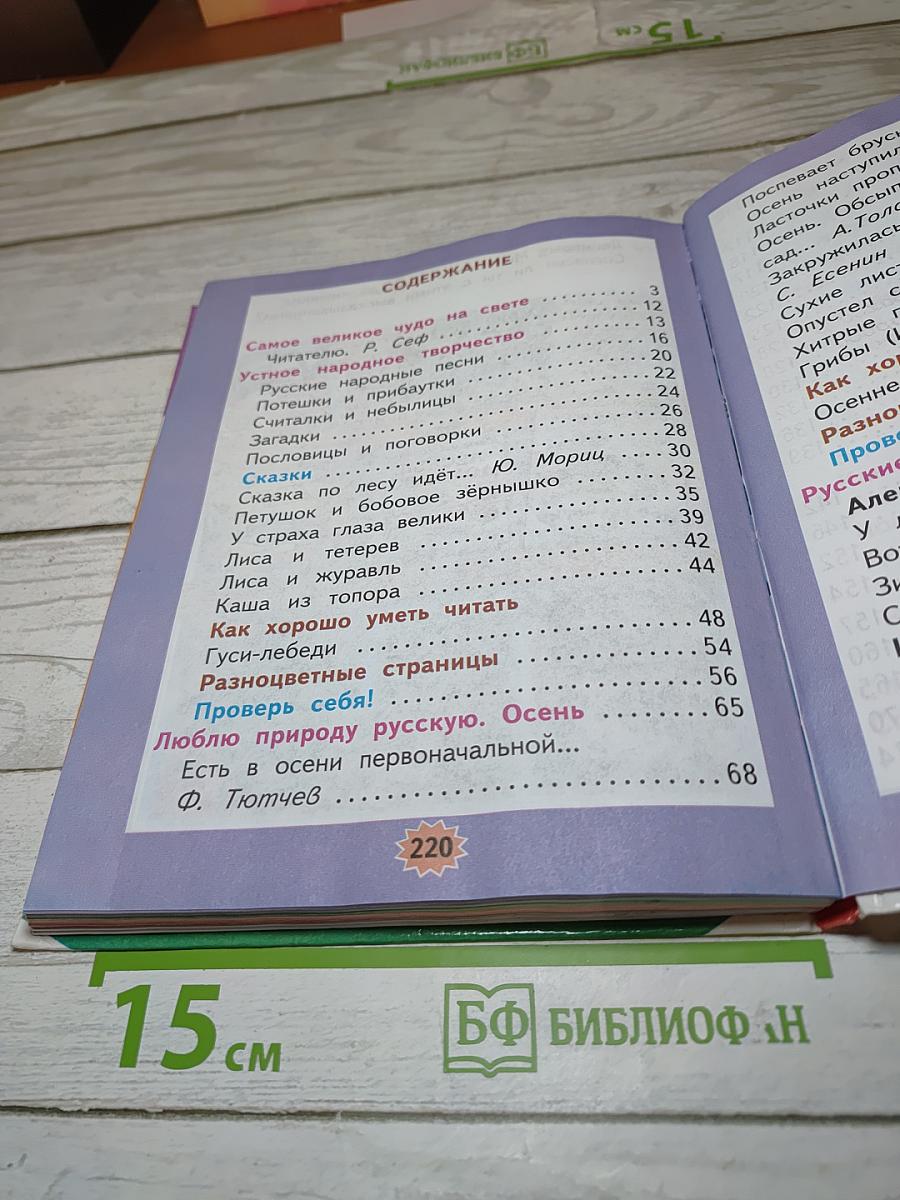 15 см
БФ БИБЛИОФАН
СОДЕРЖАНИЕ
Самое великое чудо на свете .......... 3
Читателю. Р. Сеф .......... 12
Устное народное творчество .......... 13
Русские народные песни .......... 16
Потешки и прибаутки .......... 20
Считалки и небылицы .......... 22
Загадки .......... 24
Пословицы и поговорки .......... 26
Сказки .......... 28
Сказка по лесу идёт... Ю. Мориц .... 30
Петушок и бобовое зёрнышко ....... 32
У страха глаза велики .......... 35
Лиса и тетерев .......... 39
Лиса и журавль .......... 42
Каша из топора .......... 44
Как хорошо уметь читать
Гуси-лебеди .......... 48
Разноцветные страницы .......... 54
Проверь себя! .......... 56
Люблю природу русскую. Осень ........ 65
Есть в осени первоначальной...
Ф. Тютчев .......... 68
220
Поспевает
Осень
Ласточки
Осень.
сад... А.
Закружилась
С. Есенин
Сухие
Опустел
Хитрые
Грибы
Как
Осенне
Русские
У
15 см
БФ БИБЛИОФ АН